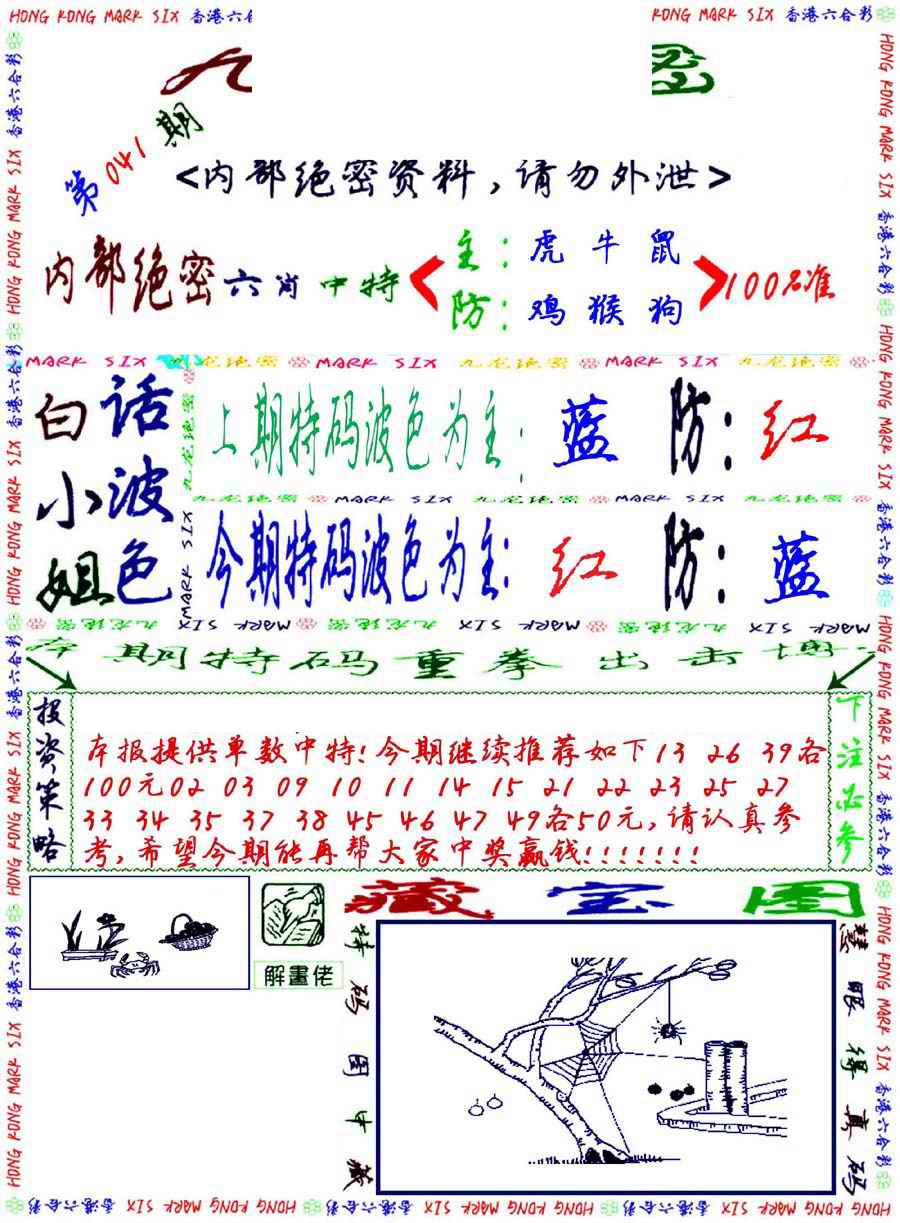 HONG KONG MARK SIX 香港六合彩
KONG MARK SIX 香港六合彩
九
密
第041期
<内部绝密资料,请勿外泄>
内部绝密六肖中特
主:虎牛鼠
防:鸡猴狗
100%准
MARK SIX 九龙绝密 MARK SIX 九龙绝密 MARK SIX 九龙绝密
白话
小波
姐色
上期特码波色为主:蓝 防:红
九龙绝密 MARK SIX 九龙绝密 MARK SIX 九龙绝密
今期特码波色为主:红 防:蓝
九龙绝密 MARK SIX 九龙绝密 MARK SIX 九龙绝密 MARK SIX
本期特码重拳出击博
投资策略
本报提供单数中特!今期继续推荐如下13 26 39各
100元02 03 09 10 11 14 15 21 22 23 25 27
33 34 35 37 38 45 46 47 49各50元,请认真参
考,希望今期能再帮大家中奖赢钱!!!!!!!
下注必参
解畫佬
藏宝图
特码图中藏
慧眼得真码
HONG KONG MARK SIX 香港六合彩